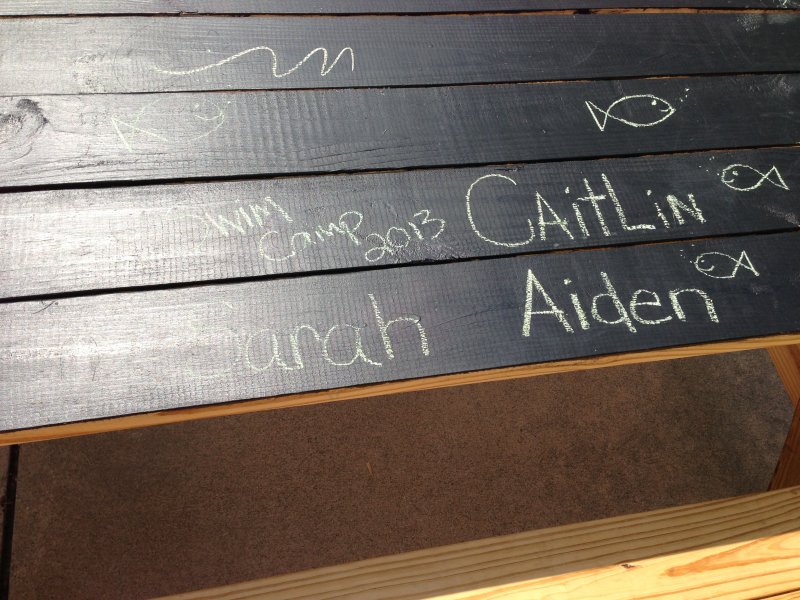 Swim
Camp 2013
CAitLiN
Sarah
Aiden